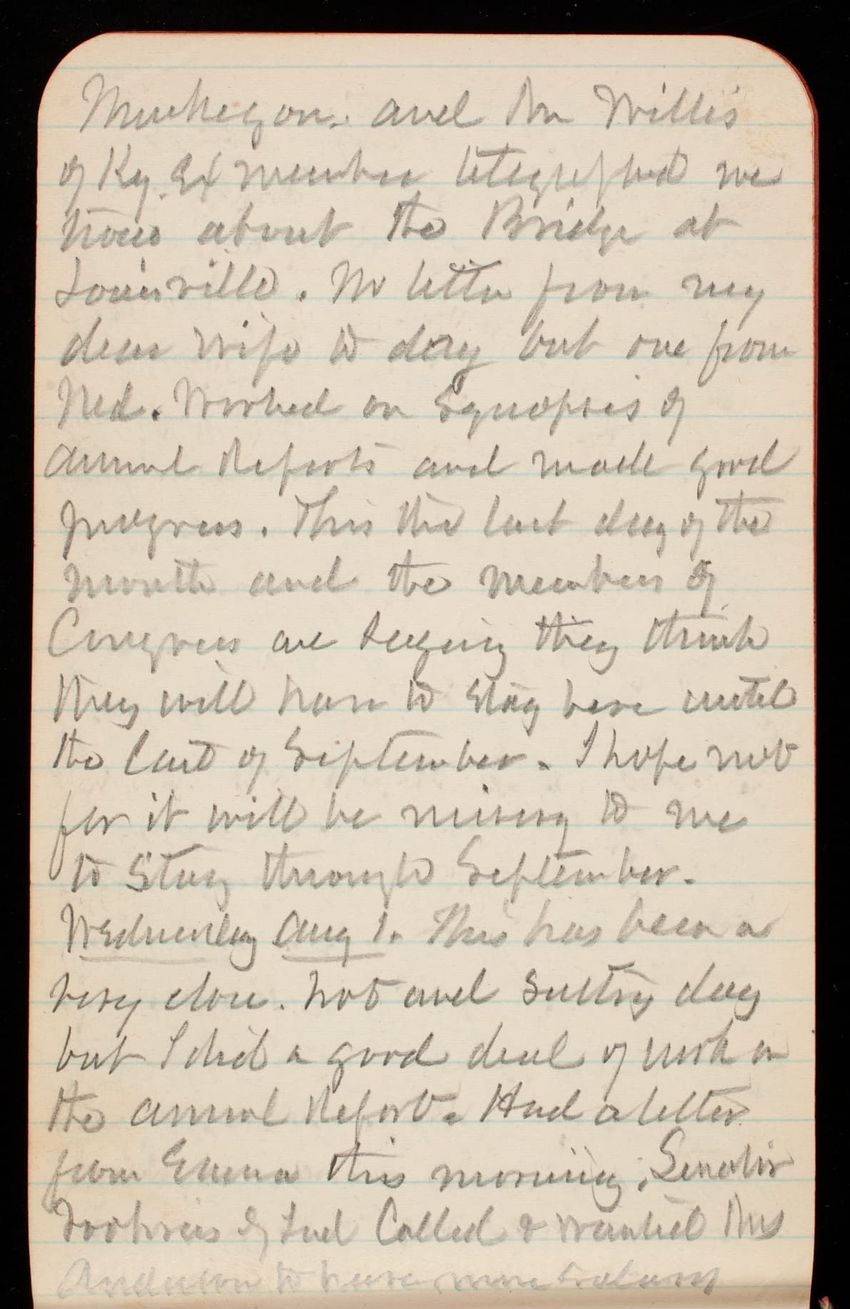 Muskegon. and Mr Willis
of Ky. Ex member telegraphed me
here about the Bridge at
Louisville. No letter from my
dear wife to day but one from
Ned. Worked on Synopsis of
Annual Reports and made good
progress. This the last day of the
month and the members of
Congress are they think
they will have to stay here until
the last of September. I hope not
for it will be misery to me
to stay through September.
Wednesday Aug 1. This has been a
very close. hot and sultry day
but I did a good deal of work on
the annual Report. Had a letter
from Emma this morning. Senator
Voorhees of Ind Called & wanted
Anderson to have more salary